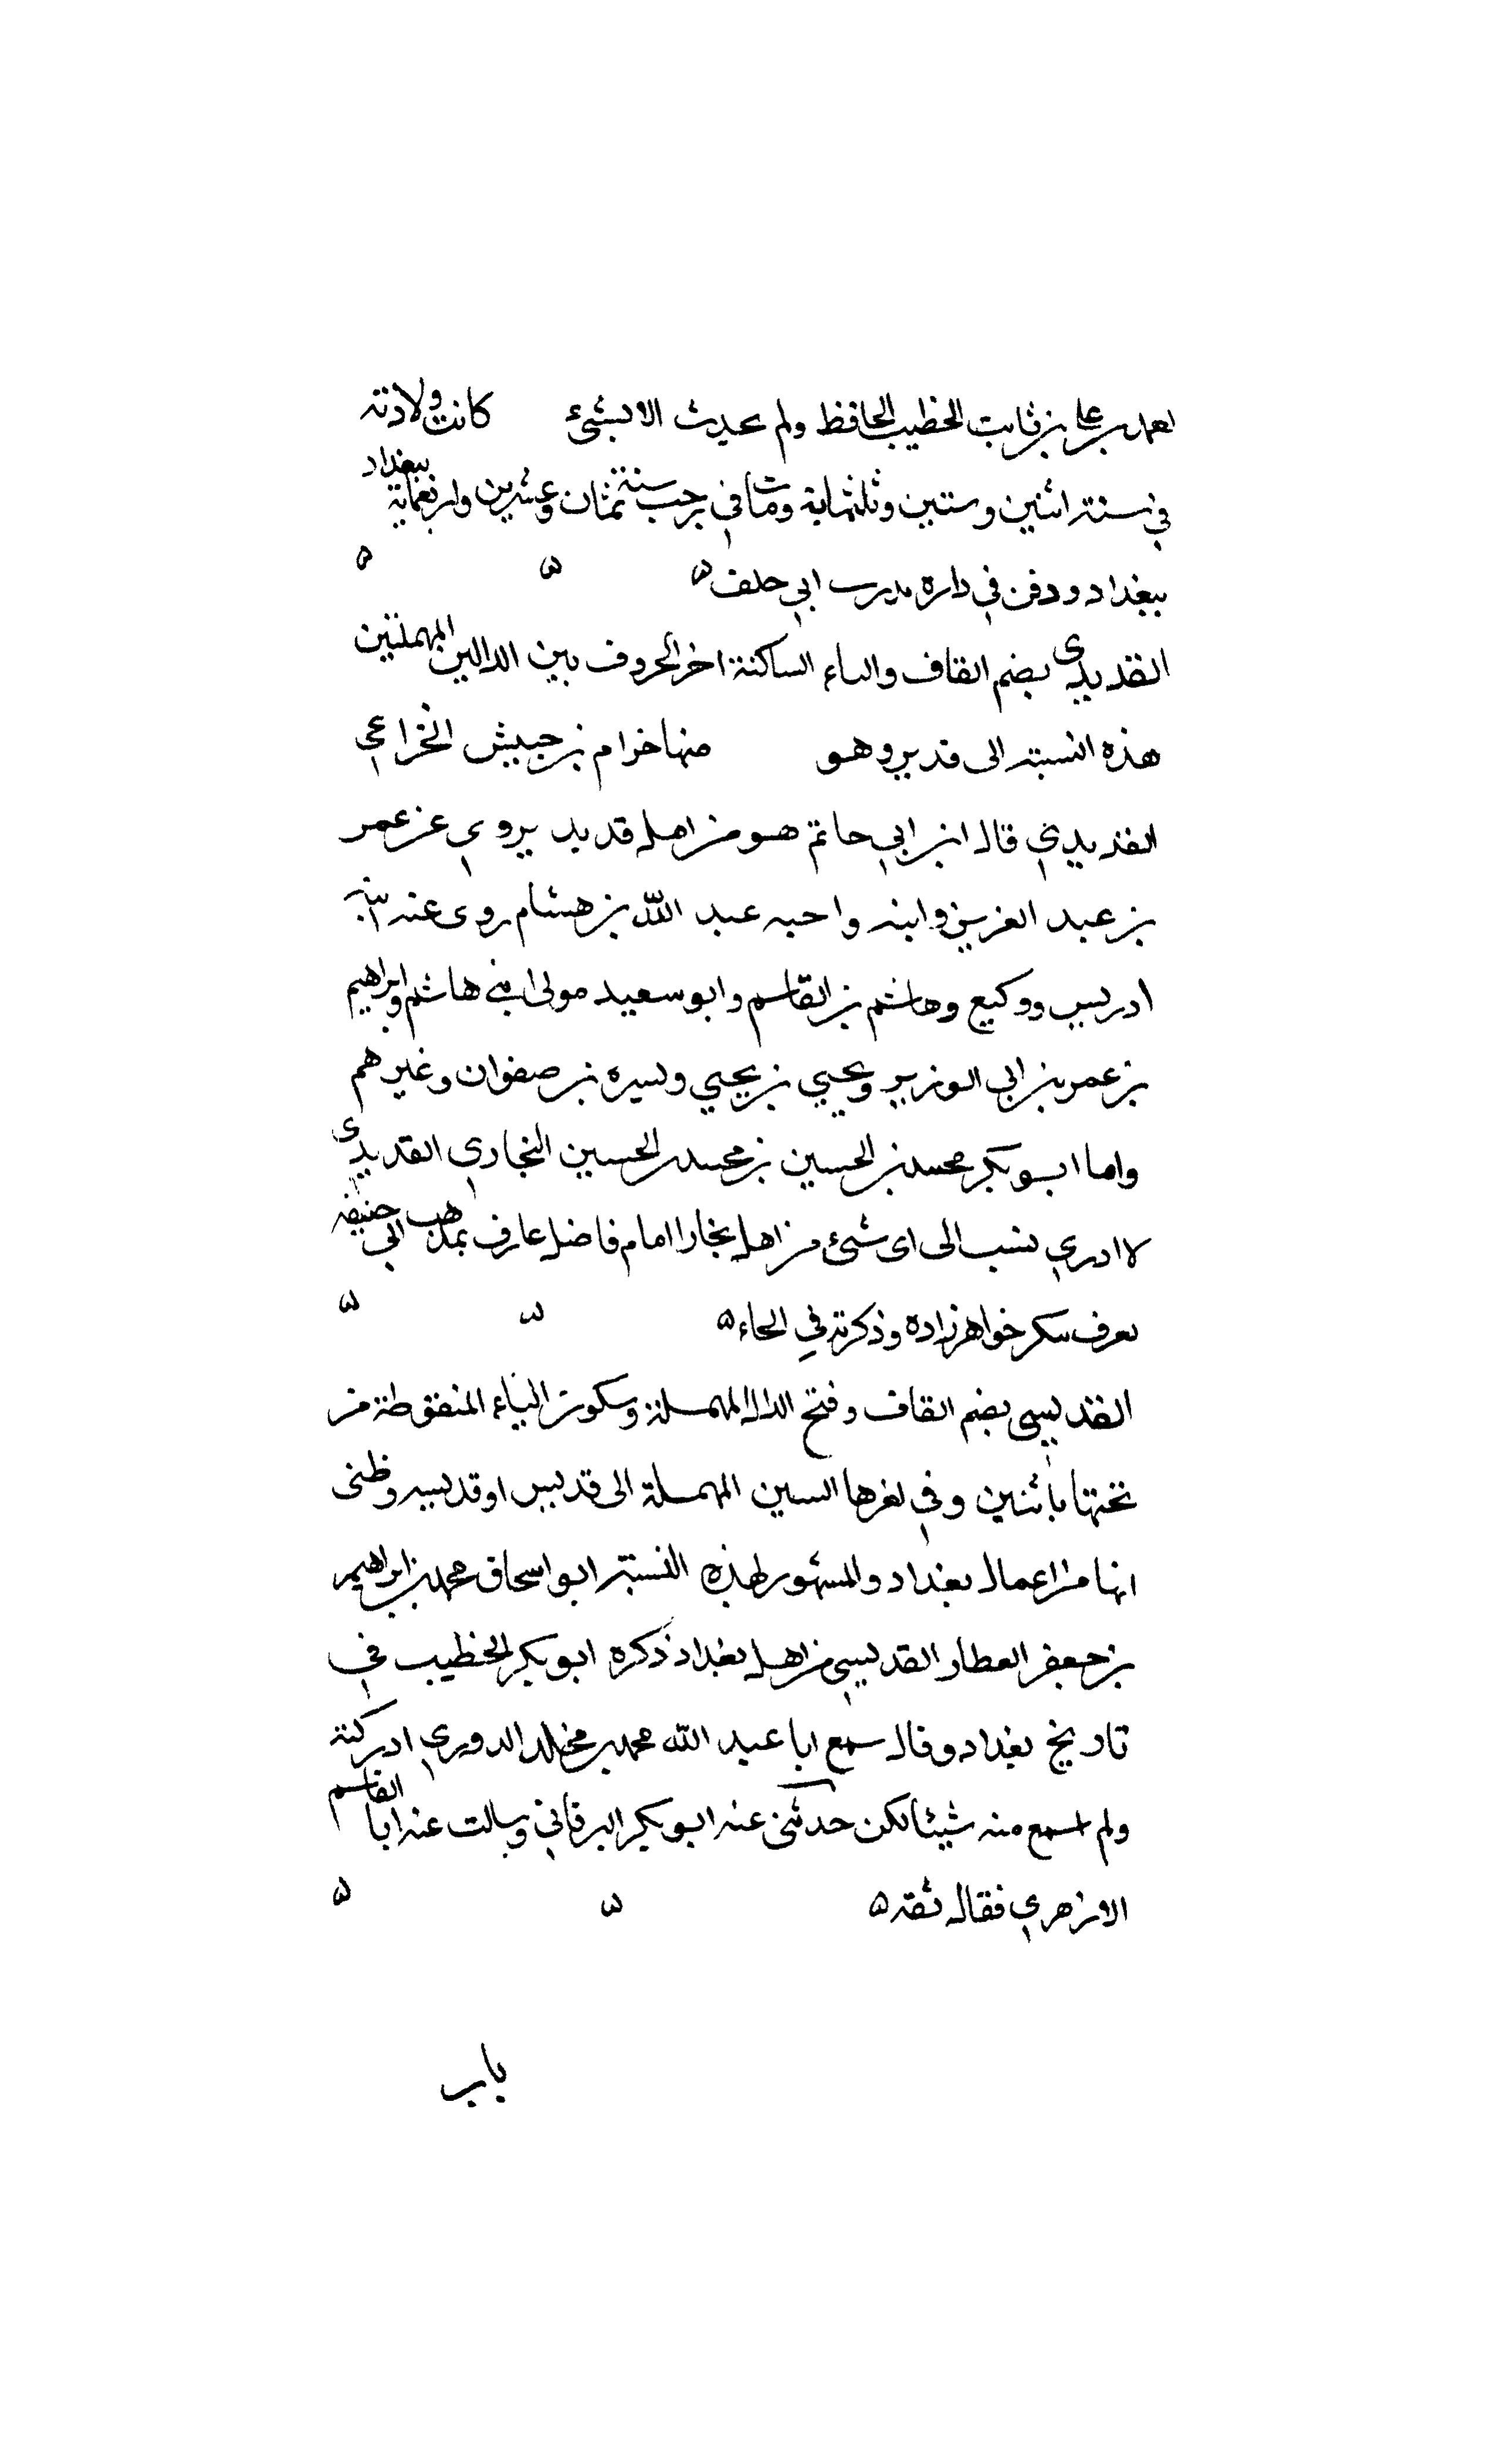 احمد بن علي بن ثابت الخطيب الحافظ ولم يحدث الا بشيء كانت ولادته
في سنة اثنين وستين وثلثماية ومات في رجب سنة ثمان وعشرين واربعماية ببغداد
ببغداد ودفن في داره بدرب ابي خلف ه ه ه
القديدى بضم القاف والياء الساكنة اخر الحروف بين الدالين المهملتين
هذه النسبة الى قديد وهو منها خزام بن حبيش الخزاعي
القديدي قال ابن ابي حاتم هو من اهل قديد يروي عن عمر
بن عبد العزيز وابنه واخيه عبد الله بن هشام روى عنه ابن
ادريس ووكيع وهاشم بن القاسم وابو سعيد مولى بني هاشم وابراهيم
بن عمر بن ابي الوزير ويحيي بن يحيي ويسره بن صفوان وغيرهم
واما ابو بكر محمد بن الحسين بن محمد بن الحسين البخاري القديدى
لا ادري نسب الى اى شئ من اهل بخارا امام فاضل عارف بمذهب ابي حنيفه
يعرف ببكر خواهرزاده وذكرته في الخاء ه ه ه
القديسي بضم القاف وفتح الدال المهملة وسكون الياء المنقوطة من
تحتها باثنين وفي اخرها السين المهملة الى قديس او قديسيه وظنى
انها من اعمال بغداد والمشهور لهذه النسبة ابو اسحاق محمد بن ابراهيم
بن جعفر العطار القديسي من اهل بغداد ذكره ابو بكر الخطيب في
تاريخ بغداد وقال سمع ابا عبد الله محمد بن مخلد الدوري ادركته
ولم اسمع منه شيئا لكن حدثني عنه ابو بكر البرقاني وسالت عنه ابا القاسم
الازهري فقال ثقه ه ه ه
باب